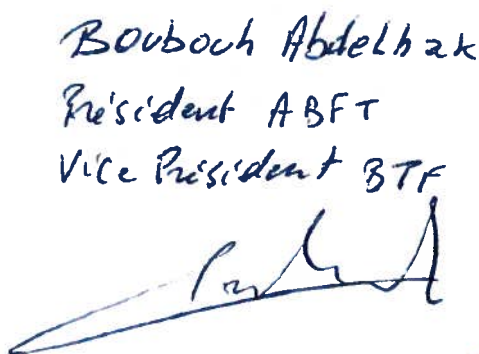 Bouboch Abdelhak
Président ABFT
Vice Président BTF